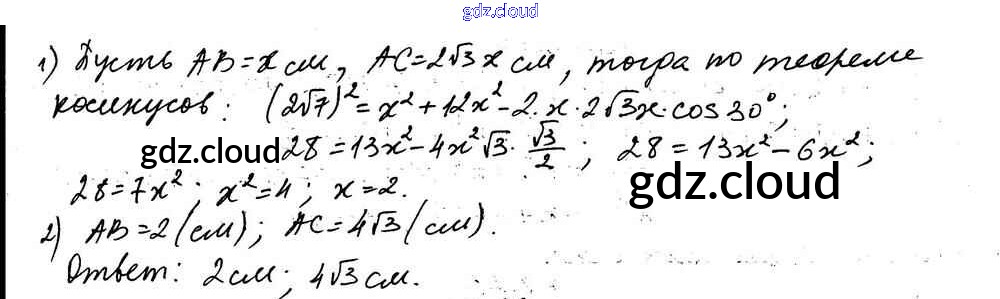 gdz.cloud
1) Пусть AB=x см, AC=2√3x см, тогда по теореме
косинусов: (2√7)²=x²+12x²-2·x·2√3x·cos30°;
gdz.cloud 28=13x²-4x²√3·√3/2; 28=13x²-6x²;
28=7x²; x²=4; x=2. gdz.cloud
2) AB=2(см); AC=4√3(см).
Ответ: 2см; 4√3см.